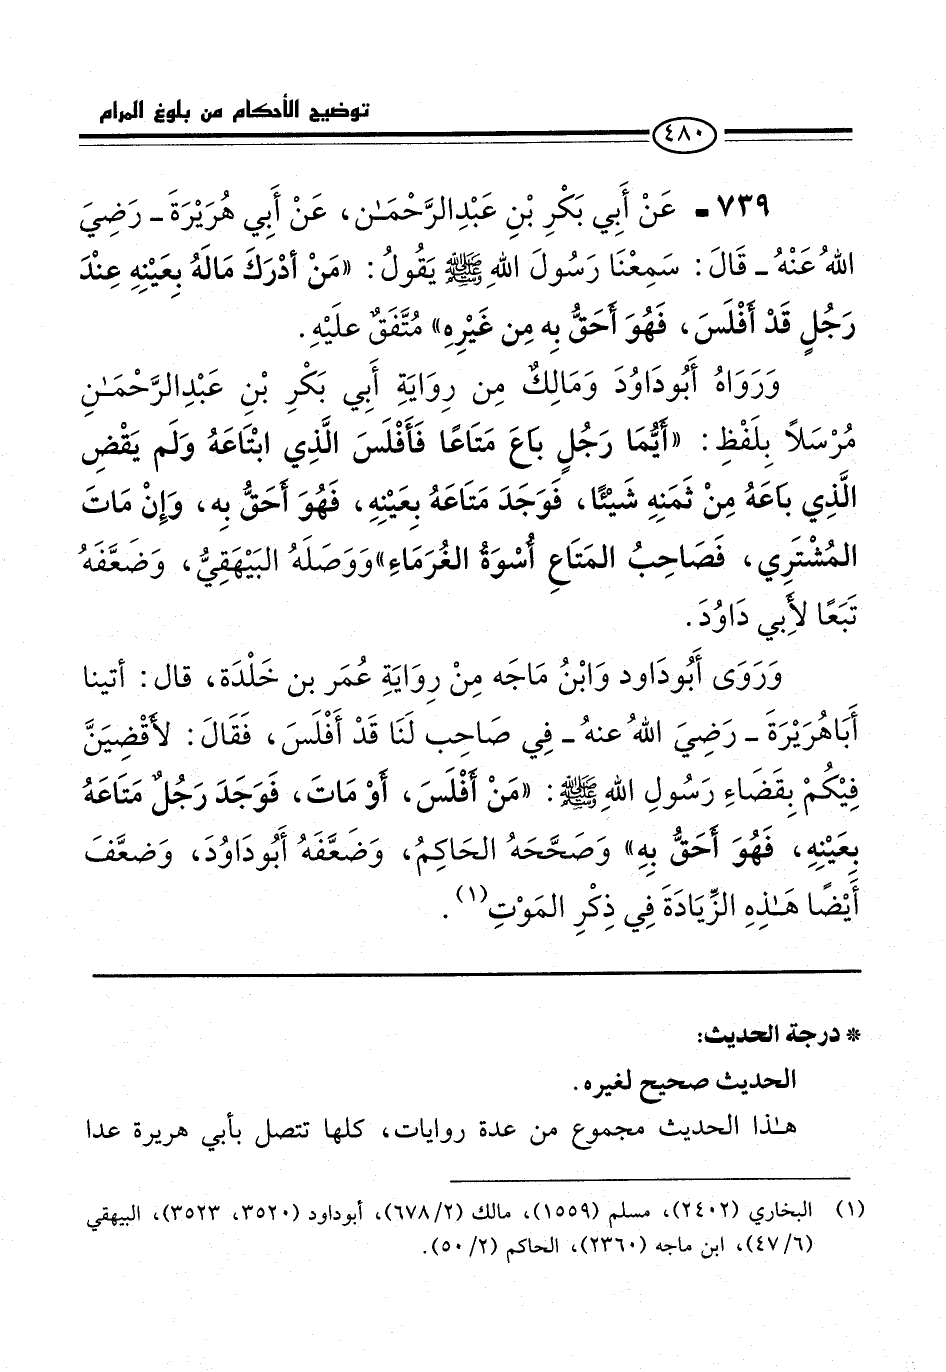 توضيح الأحكام من بلوغ المرام
٤٨٠
٧٣٩ - عَنْ أَبِي بَكْرِ بْنِ عَبْدِالرَّحْمَـٰن، عَنْ أَبِي هُرَيْرَةَ ـ رَضِيَ
اللهُ عَنْهُ ـ قَالَ: سَمِعْنَا رَسُولَ اللهِ ﷺ يَقُولُ: «مَنْ أَدْرَكَ مَالَهُ بِعَيْنِهِ عِنْدَ
رَجُلٍ قَدْ أَفْلَسَ، فَهُوَ أَحَقُّ بِه مِن غَيْرِهِ» مُتَّفَقٌ عليْهِ.
وَرَوَاهُ أَبُودَاوُدَ وَمَالِكٌ مِن رِوَايَةِ أَبِي بَكْرِ بْنِ عَبْدِالرَّحْمَـٰنِ
مُرْسَلاً بِلَفْظِ: «أَيُّمَا رَجُلٍ بَاعَ مَتَاعًا فَأَفْلَسَ الَّذِي ابْتَاعَهُ وَلَم يَقْضِ
الَّذِي بَاعَهُ مِنْ ثَمَنِهِ شَيْئًا، فَوَجَدَ مَتَاعَهُ بِعَيْنِهِ، فَهُوَ أَحَقُّ بِه، وَإِنْ مَاتَ
المُشْتَرِي، فَصَاحِبُ المَتَاعِ أُسْوَةُ الغُرَمَاءِ» وَوَصَلَهُ البَيْهَقِيُّ، وَضَعَّفَهُ
تَبَعًا لأَبِي دَاوُدَ.
وَرَوَى أَبُودَاود وَابْنُ مَاجَه مِنْ رِوَايَةِ عُمَر بن خَلْدَة، قال: أتينا
أَبَاهُرَيْرَةَ ـ رَضِيَ اللهُ عنهُ ـ فِي صَاحِب لَنَا قَدْ أَفْلَسَ، فَقَالَ: لأَقْضِيَنَّ
فِيْكُمْ بِقَضَاءِ رَسُولِ اللهِ ﷺ: «مَنْ أَفْلَسَ، أَوْ مَاتَ، فَوَجَدَ رَجُلٌ مَتَاعَهُ
بِعَيْنِهِ، فَهُوَ أَحَقُّ بِهِ» وَصَحَّحَهُ الحَاكِمُ، وَضَعَّفَهُ أَبُودَاوُدَ، وَضعَّفَ
أَيْضًا هَـٰذِهِ الزِّيَادَةَ فِي ذِكْرِ المَوْتِ(١).
* درجة الحديث:
الحديث صحيح لغيره.
هـٰذا الحديث مجموع من عدة روايات، كلها تتصل بأبي هريرة عدا
(١) البخاري (٢٤٠٢)، مسلم (١٥٥٩)، مالك (٦٧٨/٢)، أبوداود (٣٥٢٠، ٣٥٢٣)، البيهقي
(٤٧/٦)، ابن ماجه (٢٣٦٠)، الحاكم (٥٠/٢).